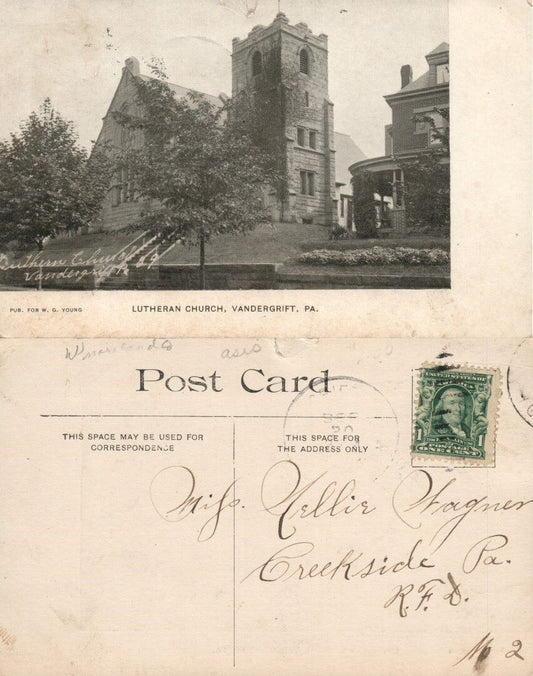 Luthern Church
Vandergrift Pa
PUB. FOR W. G. YOUNG
LUTHERAN CHURCH, VANDERGRIFT, PA.
Post Card
THIS SPACE MAY BE USED FOR
CORRESPONDENCE
THIS SPACE FOR
THE ADDRESS ONLY
SEP
UNITED STATES
POSTAGE
1 1
ONE CENT
Miss Nellie Wagner
Creekside Pa.
R.F.D.
No 2